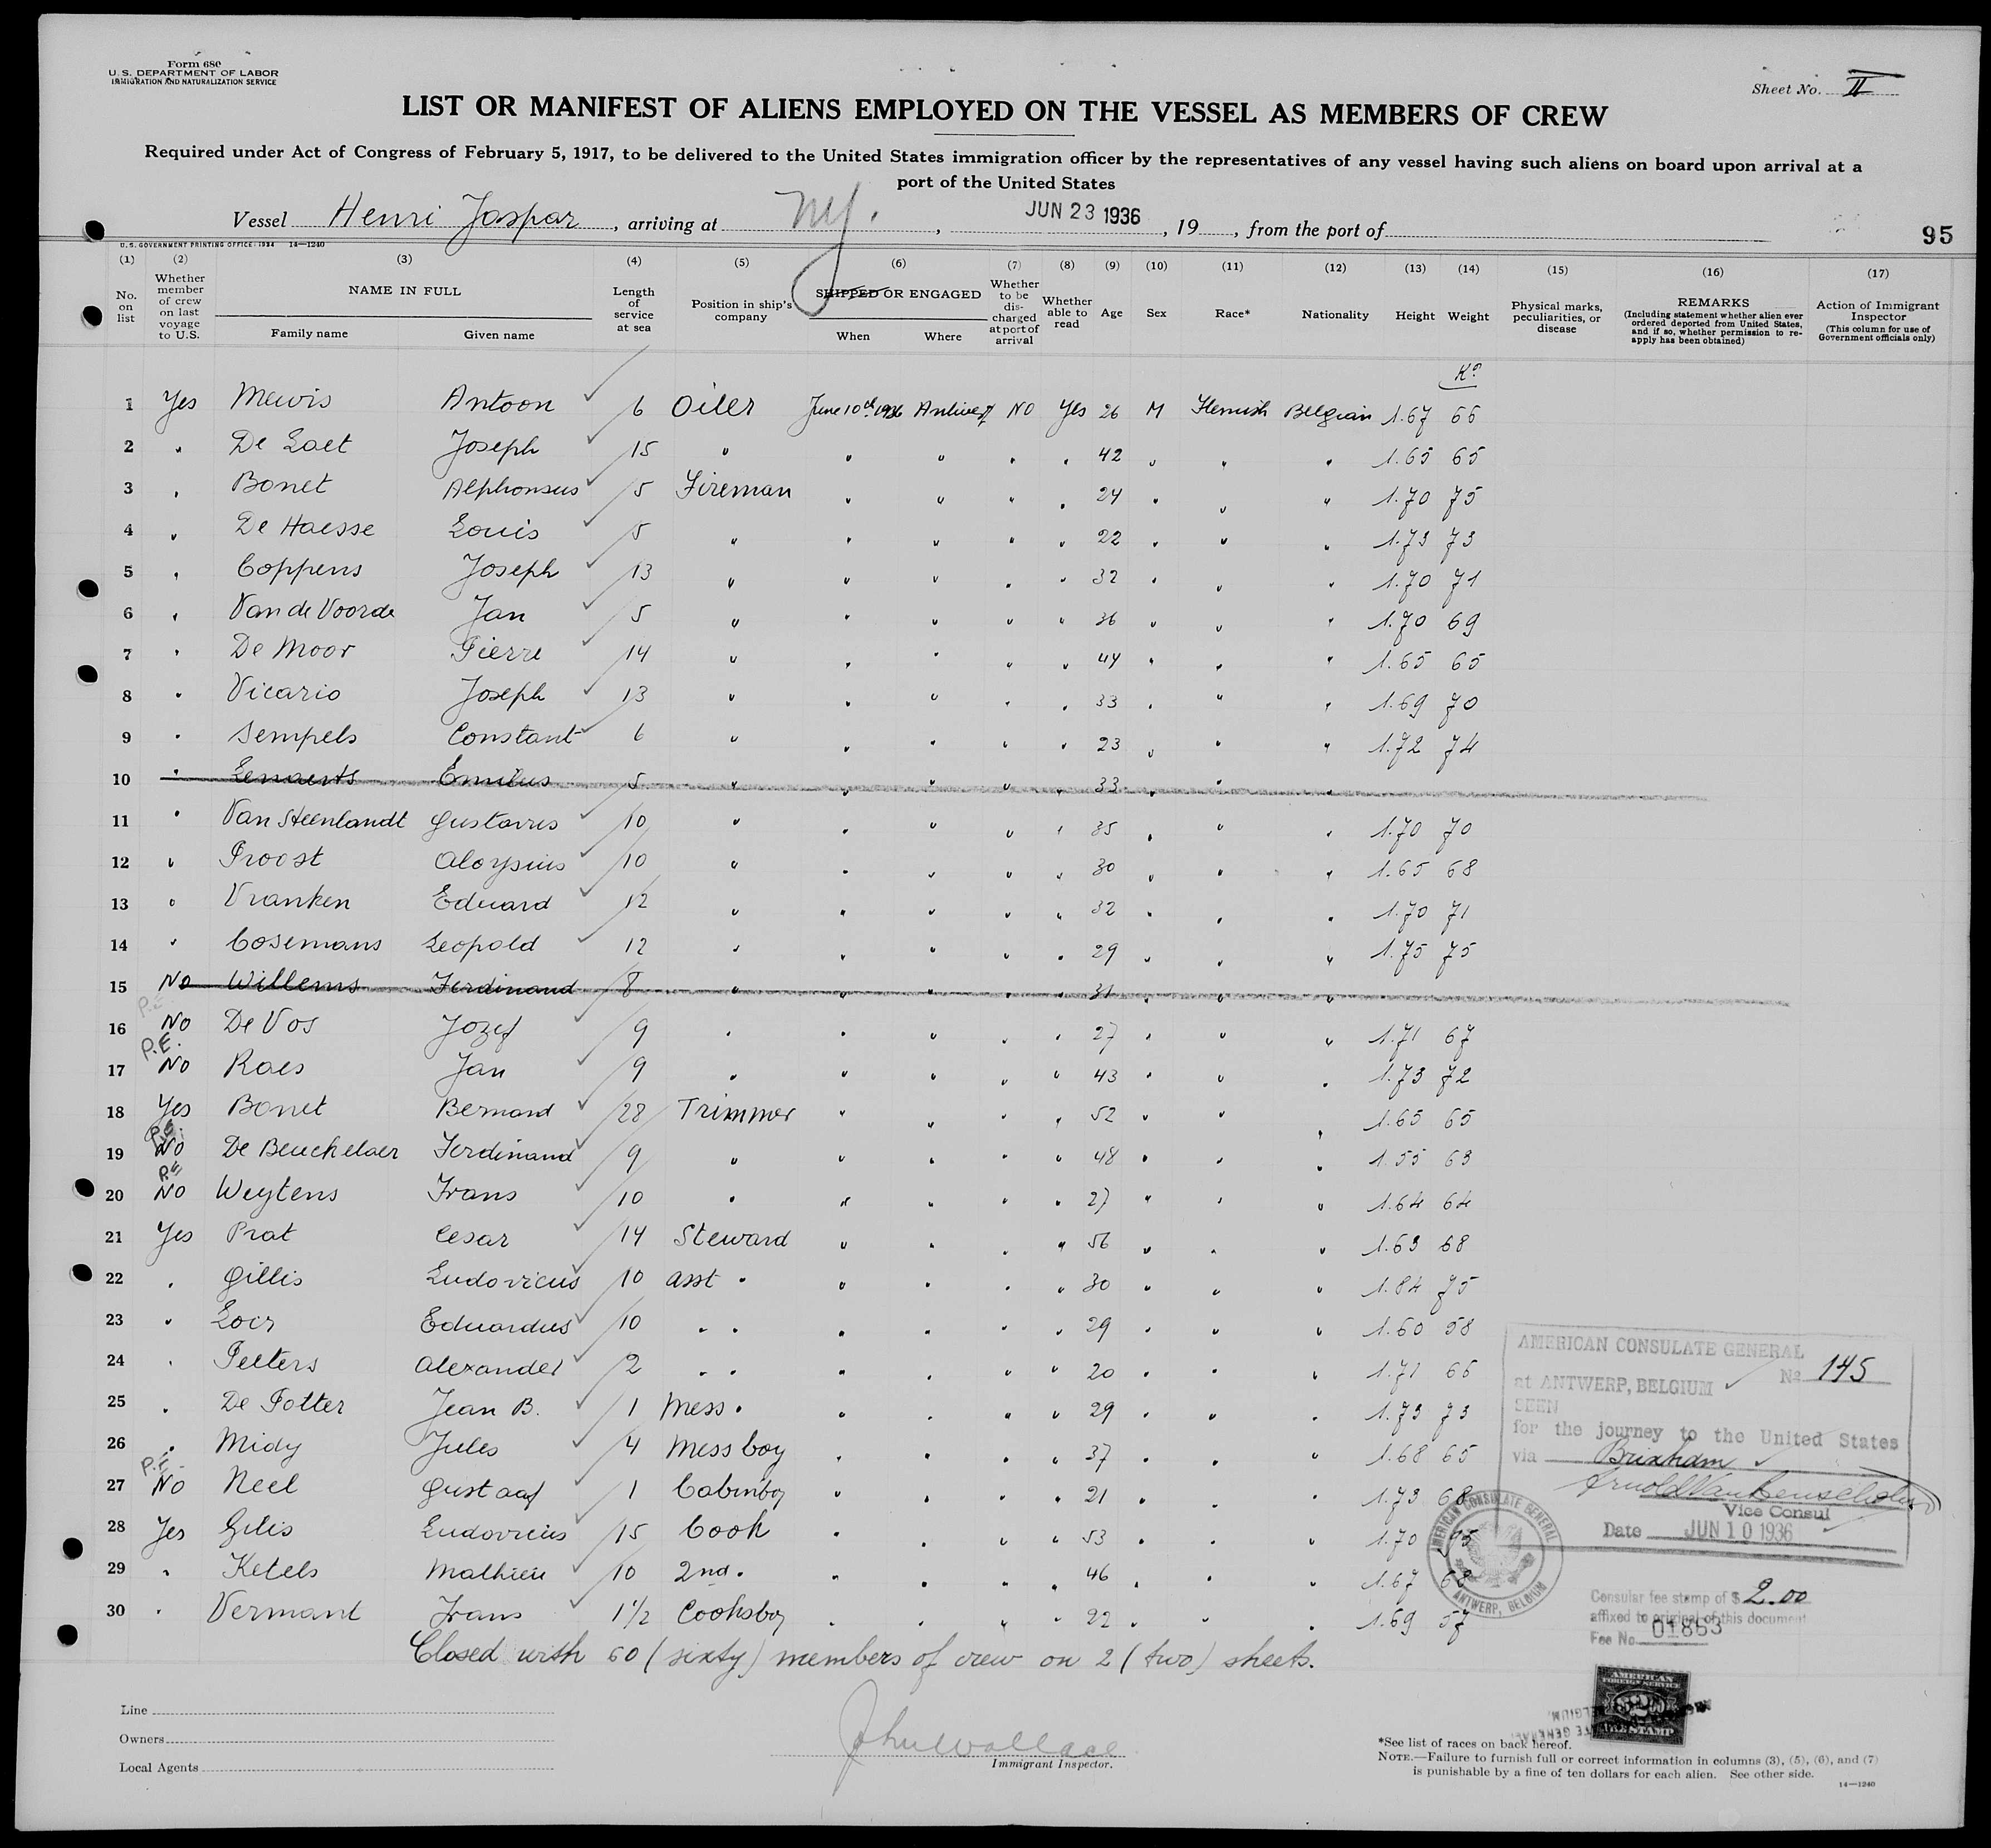 Form 680
U.S. DEPARTMENT OF LABOR
IMMIGRATION AND NATURALIZATION SERVICE
Sheet No. II
LIST OR MANIFEST OF ALIENS EMPLOYED ON THE VESSEL AS MEMBERS OF CREW
Required under Act of Congress of February 5, 1917, to be delivered to the United States immigration officer by the representatives of any vessel having such aliens on board upon arrival at a
port of the United States
Vessel Henri Jaspar, arriving at NY., JUN 23 1936, 19, from the port of
95
U.S. GOVERNMENT PRINTING OFFICE: 1934 14—1240
(1) (2) (3) (4) (5) (6) (7) (8) (9) (10) (11) (12) (13) (14) (15) (16) (17)
No. on list
Whether member of crew on last voyage to U.S.
NAME IN FULL
Family name Given name
Length of service at sea
Position in ship's company
SHIPPED OR ENGAGED
When Where
Whether to be discharged at port of arrival
Whether able to read
Age
Sex
Race*
Nationality
Height
Weight
Physical marks, peculiarities, or disease
REMARKS
(Including statement whether alien ever ordered deported from United States, and if so, whether permission to reapply has been obtained)
Action of Immigrant Inspector
(This column for use of Government officials only)
Ko
1 Yes Mewis Antoon 6 Oiler June 10th 1936 Antwerp No Yes 26 M Flemish Belgian 1.67 66
2 " De Laet Joseph 15 " " " " " 42 " " " 1.65 65
3 " Bonet Alphonsus 5 Fireman " " " " 24 " " " 1.70 75
4 " De Haesse Louis 5 " " " " " 22 " " " 1.73 73
5 " Coppens Joseph 13 " " " " " 32 " " " 1.70 71
6 " Van de Voorde Jan 5 " " " " " 36 " " " 1.70 69
7 " De Moor Pierre 14 " " " " " 44 " " " 1.65 65
8 " Vicario Joseph 13 " " " " " 33 " " " 1.69 70
9 " Sempels Constant 6 " " " " " 23 " " " 1.72 74
10 " Lenaerts Emilus 5 " " " " " 33 " " "
11 " Van Steenlandt Gustavus 10 " " " " " 35 " " " 1.70 70
12 " Proost Aloysius 10 " " " " " 30 " " " 1.65 68
13 " Vranken Eduard 12 " " " " " 32 " " " 1.70 71
14 " Cosemans Leopold 12 " " " " " 29 " " " 1.75 75
15 No Willems Ferdinand 8 " " " " " 31 " " "
P.E.
16 No De Vos Jozef 9 " " " " " 27 " " " 1.71 67
P.E.
17 No Raes Jan 9 " " " " " 43 " " " 1.73 72
18 Yes Bonet Bernard 28 Trimmer " " " " 52 " " " 1.65 65
P.E.
19 No De Beuckelaer Ferdinand 9 " " " " " 48 " " " 1.55 63
P.E.
20 No Weytens Frans 10 " " " " " 27 " " " 1.64 64
21 Yes Prat Cesar 14 Steward " " " " 56 " " " 1.63 68
22 " Gillis Ludovicus 10 asst " " " " " 30 " " " 1.84 75
23 " Locr Eduardus 10 " " " " " " 29 " " " 1.60 58
24 " Peeters Alexander 2 " " " " " " 20 " " " 1.71 66
25 " De Potter Jean B. 1 Mess " " " " " 29 " " " 1.73 73
26 " Midy Jules 4 Mess boy " " " " 37 " " " 1.68 65
P.E.
27 No Neel Gustaaf 1 Cabinboy " " " " 21 " " " 1.73 68
28 Yes Gilis Ludovicus 15 Cook " " " " 53 " " " 1.70 95
29 " Ketels Mathieu 10 2nd " " " " " 46 " " " 1.67 68
30 " Vermant Frans 1 1/2 Cooksboy " " " " 22 " " " 1.69 57
Closed with 60 (sixty) members of crew on 2 (two) sheets.
AMERICAN CONSULATE GENERAL
No 145
at ANTWERP, BELGIUM
SEEN
for the journey to the United States
via Brixham
Vice Consul
Date JUN 10 1936
AMERICAN CONSULATE GENERAL
ANTWERP, BELGIUM
Consular fee stamp of $ 2.00
affixed to original of this document
Fee No. 01863
AMERICAN
FOREIGN SERVICE
$2.00
FEE STAMP
Line
Owners
Local Agents
John Wallace
Immigrant Inspector.
*See list of races on back hereof.
NOTE.—Failure to furnish full or correct information in columns (3), (5), (6), and (7)
is punishable by a fine of ten dollars for each alien. See other side.
14—1240